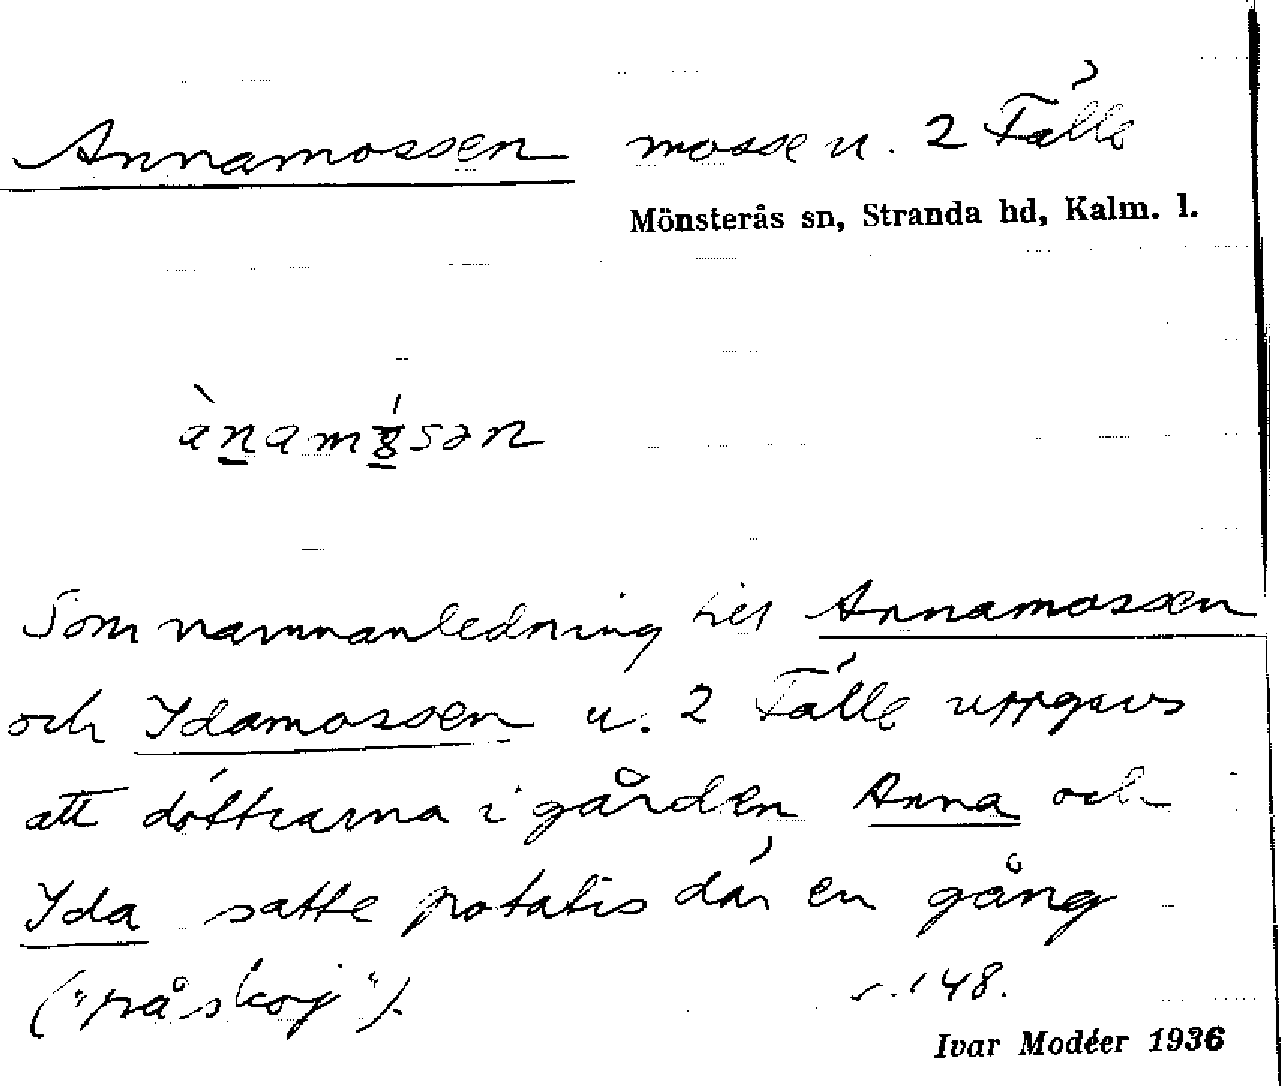 Annamossen mosse u. 2 Fälle
Mönsterås sn, Stranda hd, Kalm. l.
Som namnanledning till Annamossen
och Idamossen u. 2 Fälle uppgavs
att döttrarna i gården Anna och
Ida satte potatis där en gång
("på skoj").
s. 148.
Ivar Modéer 1936